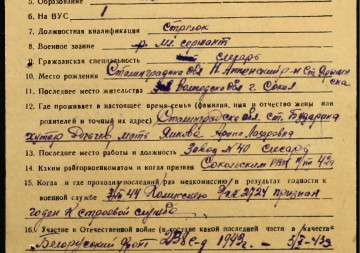 5. Образование
6. На ВУС 1
7. Должностная квалификация стрелок
8. Военное звание мл. сержант
9. Гражданская специальность слесарь
10. Место рождения Сталинградская обл
11. Последнее место жительства Вологодская обл г. Сокол
12. Где проживает в настоящее время семья (фамилия, имя и отчество жены или
родителей и точный их адрес) Сталинградская обл. ст. Бударина
хутор мать
13. Последнее место работы и должность Завод № 40 слесарь
14. Каким райгорвоенкоматом и когда призван Сокольским РВК
15. Когда и где проходил последний раз медкомиссию и результат годности к
военной службе 44 Комиссию 2724 признан
годен к строевой службе
16. Участие в Отечественной войне (в составе какой последней части и в качестве
Белорусский фронт 238 с-д 1943 г. -